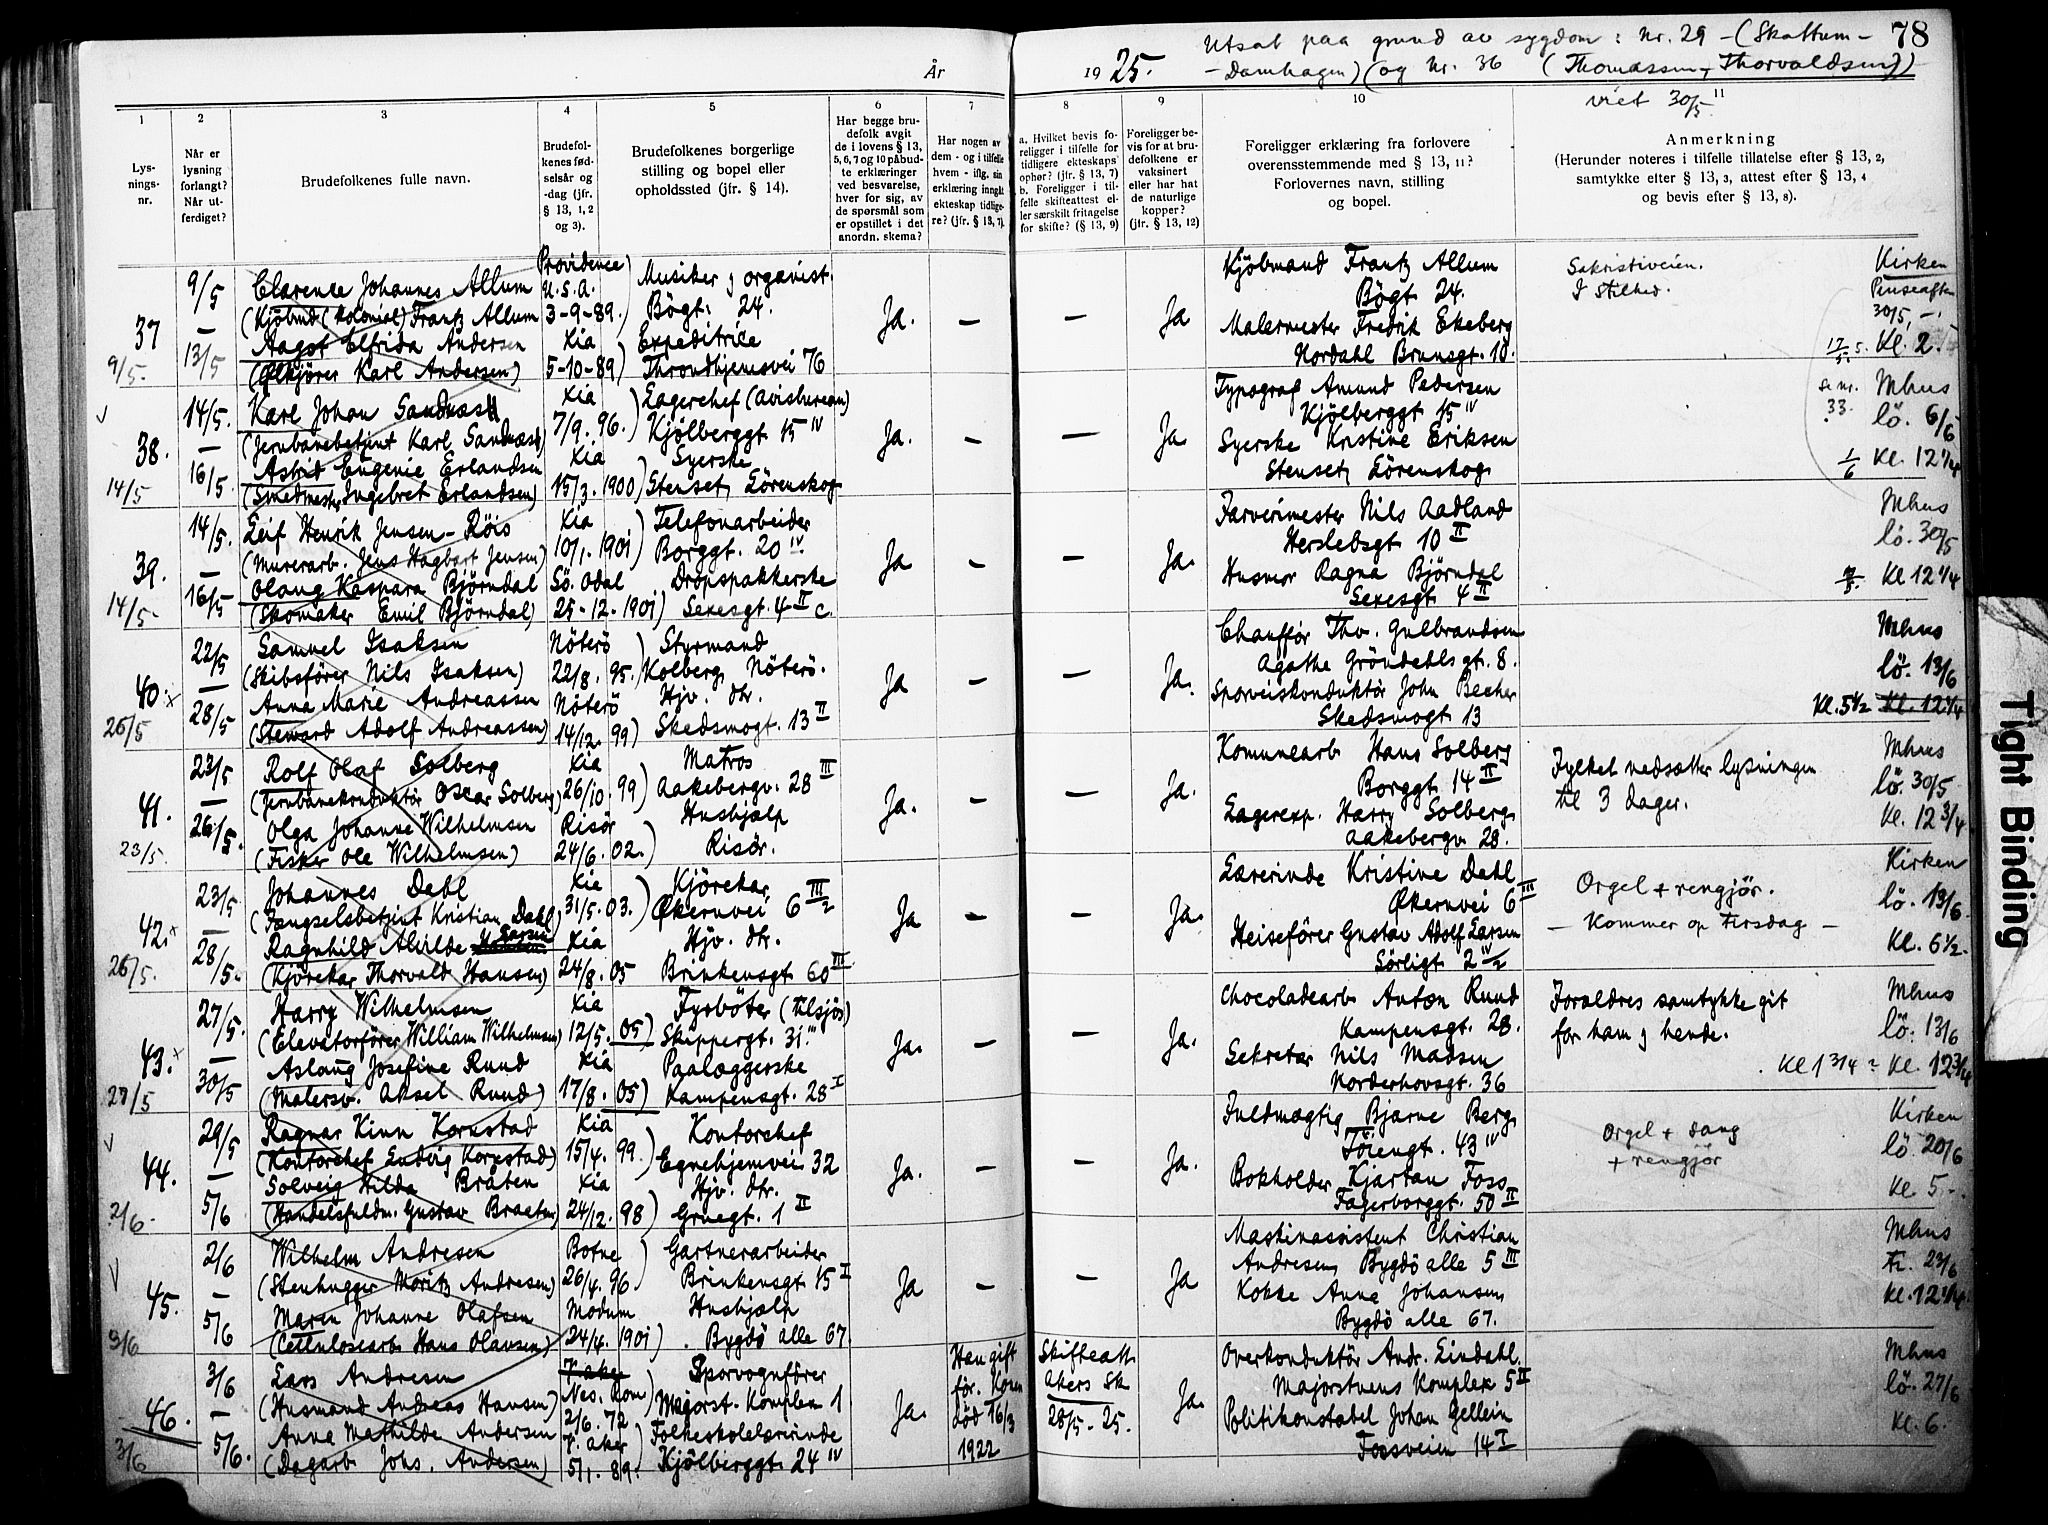 Utsat paa grund av sygdom: Nr. 29 - (Skattum -
78
År
19 25.
- Damhagen) (og Nr. 36 (Thomassen - Thorvaldsen))
viet 30/5
1 2 3 4 5 6 7
8 9 10 11
Lys-
nings-
nr.
Når er
lysning
forlangt?
Når ut-
ferdiget?
Brudefolkenes fulle navn.
Brudefol-
kenes fød-
selsår og
-dag (jfr.
§ 13, 1, 2
og 3).
Brudefolkenes borgerlige
stilling og bopel eller
opholdssted (jfr. § 14).
Har begge bru-
defolk avgit
de i lovens § 13,
5, 6, 7 og 10 påbud-
te erklæringer
ved besvarelse,
hver for sig, av
de spørsmål som
er opstillet i det
anordn. skema?
Har nogen av
dem - og i tilfelle
hvem - iflg. sin
erklæring inngått
ekteskap tidlige-
re? (jfr. § 13, 7).
a. Hvilket bevis fo-
religger i tilfelle for
tidligere ekteskaps
ophør? (jfr. § 13, 7)
b. Foreligger i til-
felle skifteattest el-
ler særskilt fritagelse
for skifte? (§ 13, 9)
Foreligger be-
vis for at bru-
defolkene er
vaksinert
eller har hat
de naturlige
kopper?
(jfr. § 13, 12)
Foreligger erklæring fra forlovere
overensstemmende med § 13, 11?
Forlovernes navn, stilling
og bopel.
Anmerkning
(Herunder noteres i tilfelle tillatelse efter § 13, 2,
samtykke efter § 13, 3, attest efter § 13, 4
og bevis efter § 13, 8).
37
9/5.
9/5
—
13/5
Clarence Johannes Allum
(Kjøbmd (Kolonial) Frantz Allum
Aagot Elfrida Andersen
(Ølkjører Karl Andersen)
Providence
U.S.A.
3-9-89.)
Kia
5-10-89)
Musiker & organist.
Bögt: 24.
Expeditrice
Throndhjemsvei 76
Ja. — — Ja
Kjöbmand Frantz Allum
Bögt 24.
Malermester Fredrik Ekeberg
Nordahl Brunsgt. 10.
Sakristiveien.
I Stilhed.
Kirken
Pinseaften
30/5, -.
17/5. 5. Kl. 2.
38.
14/5
14/5.
—
16/5.
Karl Johan Sandaas
(Jernbanebetjent Karl Sandaas)
Astrid Eugenie Erlandsen
(Smedmester Ingebret Erlandsen)
Kia
7/9. 96.)
Kia
15/3. 1900)
Lagerchef (avisbureau)
Kjölberggt. 15 IV
Syerske
Stenset, Lörenskog
Ja. — — Ja.
Typograf Amund Pedersen
Kjölberggt 15 IV
Syerske Kristine Eriksen
Stenset, Lörenskog
Se nr.
33.
Mhus
lö. 6/6
1/6 Kl. 12 1/4
39.
14/5-
14/5.
—
16/5
Leif Henrik Jensen-Röis
(Murerarb. Jens Hagbart Jensen)
Olaug Kaspara Björndal
(Skomaker Emil Björndal)
Kia
10/1. 1901)
Sö. Odal
25-12-1901)
Telefonarbeider
Borggt. 20 IV
Dropspakkerske
Sexesgt. 4 II c.
Ja — — Ja.
Farverimester Nils Aadland
Herslebsgt 10 II
Husmor Ragna Björndal
Sexesgt 4 II
Mhus
lö. 30/5
Kl 12 1/4
40.x
26/5
22/5
—
28/5
Samuel Isaksen
(Skibsförer Nils Isaksen)
Anna Marie Andreassen
(Steward Adolf Andreassen)
Nöterö
22/8. 95.)
Nöterö
14/12. 99)
Styrmand
Kolberg, Nöterö.
Hjv. dtr.
Skedsmogt. 13 II
Ja — — Ja.
Chauffør Thv. Gulbrandsen
Agathe Gröndahlsgt. 8.
Sporveiskonduktör John Becher
Skedsmogt 13
Mhus
lö. 13/6
Kl. 5 1/2 Kl. 12 1/4
41.
23/5.
23/5
—
26/5.
Rolf Olaf Solberg
(Jernbanekonduktör Oscar Solberg)
Olga Johanne Wilhelmsen
(Fisker Ole Wilhelmsen)
Kia
26/10. 99)
Risör
24/6. 02.)
Matros
Aakebergv. 28 III
Hushjælp
Risör.
Ja. — — Ja.
Komunearb Hans Solberg
Borggt. 14 II
Lagerexp. Harry Solberg
Aakebergv. 28.
Fylket nedsætter lysningen
til 3 dager.
Mhus
lö. 30/5
Kl. 12 3/4
42.x
26/5.
23/5
—
28/5.
Johannes Dahl
(Fængselsbetjent Kristian Dahl)
Ragnhild Alvilde Larsen
(Kjörekar Thorvald Hansen)
Kia
31/5. 03.)
Kia
24/8. 05
Kjörekar
Økernvei 6 III/2
Hjv. dtr.
Brinkensgt 60 III
Ja — — Ja.
Lærerinde Kristine Dahl
Økernvei 6 III
Heiseförer Gustav Adolf Larsen
Sörligt 2 IV/2
Orgel + rengjör.
— Kommer op Tirsdag —
Kirken
lö. 13/6
Kl. 6 1/2.
43.x
27/5
27/5.
—
30/5
Harry Wilhelmsen
(Elevatorförer William Wilhelmsen)
Aslaug Josefine Ruud
(Malersv. Aksel Ruud)
Kia
12/5. 05)
Kia
17/8. 05)
Fyrböter (tilsjös)
Skippergt. 31 III
Paalæggerske
Kampensgt. 28 I
Ja. — — Ja.
Chocoladearb Anton Ruud
Kampensgt. 28.
Sekretær Nils Madsen
Norderhovsgt. 36
Forældres samtykke git
for ham & hende.
Mhus
lö. 13/6
Kl 1 3/4 ? Kl. 12 3/4
44.
2/6-
29/5
—
5/6
Ragnar Kinn Kornstad
(Kontorchef Ludvig Kornstad)
Solveig Hilda Bråten
(Handelsfuldm. Gustav Braaten)
Kia
15/4. 99.)
Kia
24/12. 98)
Kontorchef
Egnehjemvei 32
Hjv. dtr.
Gruegt. 1 II
Ja. — — Ja.
Fuldmægtig Bjarne Berg
Töiengt. 43 IV
Bokholder Kjartan Foss
Fagerborggt. 50 II
Orgel + sang
+ rengjör
Kirken
lö. 20/6
Kl. 5 -.
45.
3/6
2/6
—
5/6
Wilhelm Andresen
(Stenhugger Moritz Andresen)
Maren Johanne Olafsen
(Cellulosearb. Hans Olavsen)
Botne
26/4. 96)
Modum
24/4. 1901)
Gartnerarbeider
Brinkensgt 15 I
Hushjælp
Bygdö alle 67.
Ja — — Ja
Maskinassistent Christian
Andresen, Bygdö alle 5 III
Kokke Anna Johansen
Bygdö alle 67.
Mhus
Ti. 23/6
Kl. 12 1/4.
46.
3/6
3/6
—
5/6.
Lars Andresen
(Husmand Andreas Hansen)
Anna Mathilde Andersen
(Dagarb Johs. Andersen)
V. aker
Nes. Rom)
2/6. 72
V. aker
5/1. 89.)
Sporvognförer
Majorst. Komplex 1
Folkeskolelærerinde
Kjölberggt. 24 IV
Ja.
Han gift
för. Konen
död 16/3
1922
Skifteatt
Akers Sk
28/5. 25.
Ja.
Overkonduktör Andr. Lindahl.
Majorstuens Komplex 5 II
Politikonstabel Johan Gellein
Fossveien 14 I
Mhus
lö. 27/6
Kl. 6.
Tight Binding